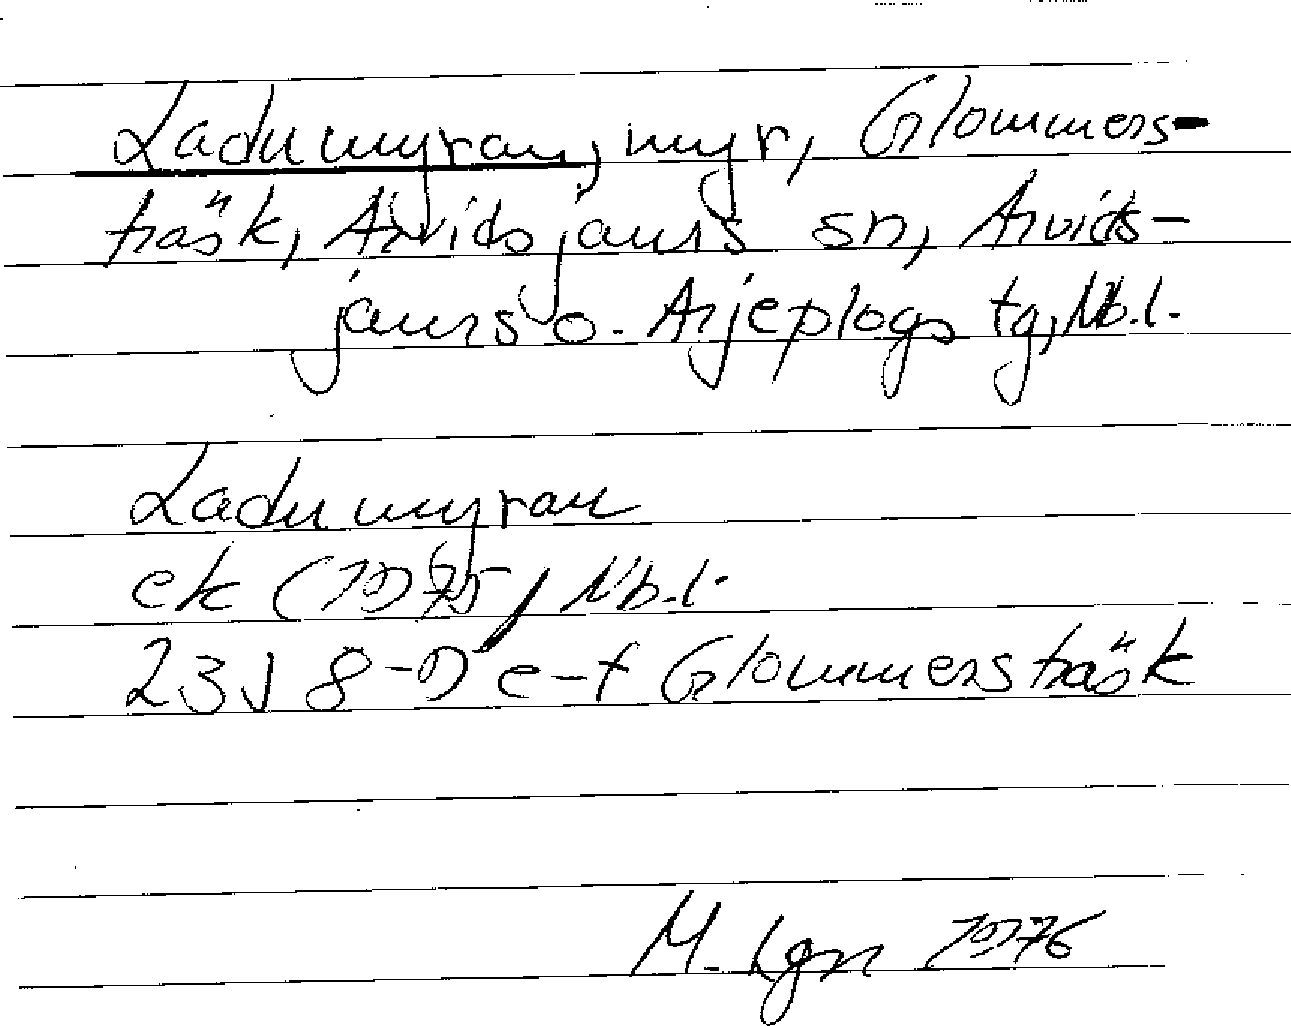 Ladumyran, myr, Glommers-
träsk, Arvidsjaurs sn, Arvids-
jaurs o. Arjeplogs tg, Nb.l.
Ladumyran
ek (1975), Nb.l.
23J 8-9 e-f Glommersträsk
M. Lgn 1976